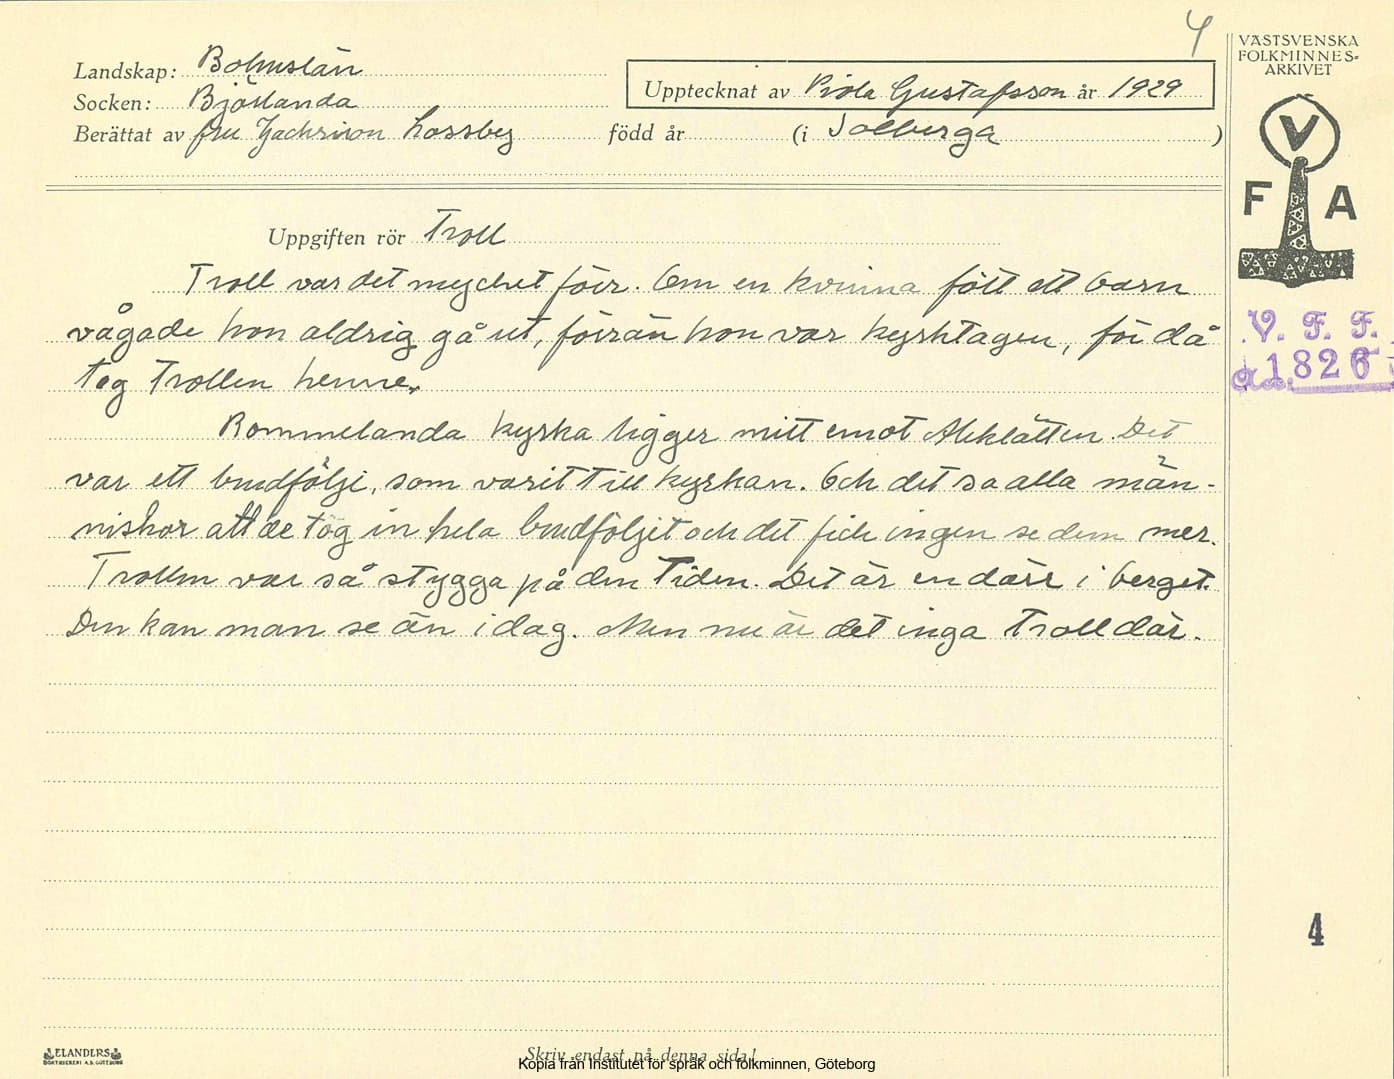 4
VÄSTSVENSKA
FOLKMINNES-
ARKIVET
Landskap: Bohuslän
Socken: Björlanda
Upptecknat av Viola Gustafsson år 1929
Berättat av fru Zachrisson Lossby född år (i Solberga )
V
F A
Uppgiften rör Troll
Troll var det mychet förr. Om en kvinna fött ett barn
vågade hon aldrig gå ut, förrän hon var kyrktagen, för då
tog Trollen henne.
V. F. F.
1826
Rommelanda kyrka ligger mitt emot Aleklätten. Det
var ett brudfölje, som varit till kyrkan. Och det sa alla män-
niskor att de tog in hela brudföljet och det fick ingen se dem mer.
Trollen var så stygga på den Tiden. Det är en dörr i berget.
Den kan man se än idag. Men nu är det inga Troll där.
4
ELANDERS
BOKTRYCKERI A.B. GÖTEBORG
Skriv endast på denna sida!
Kopia från Institutet för språk och folkminnen, Göteborg